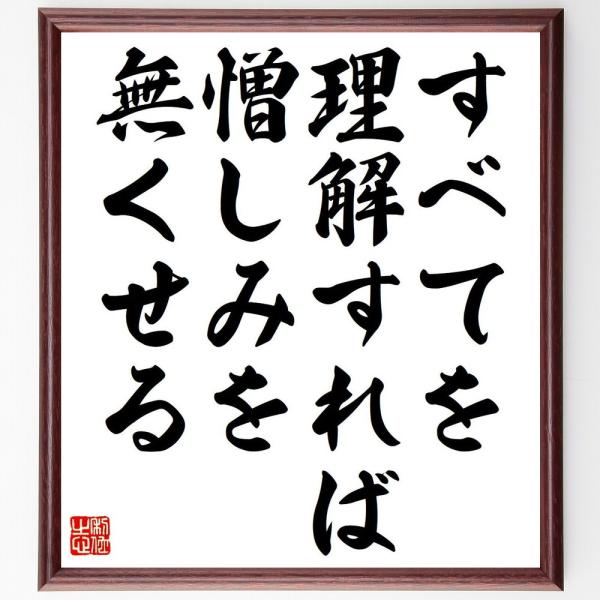 すべてを
理解すれば
憎しみを
無くせる